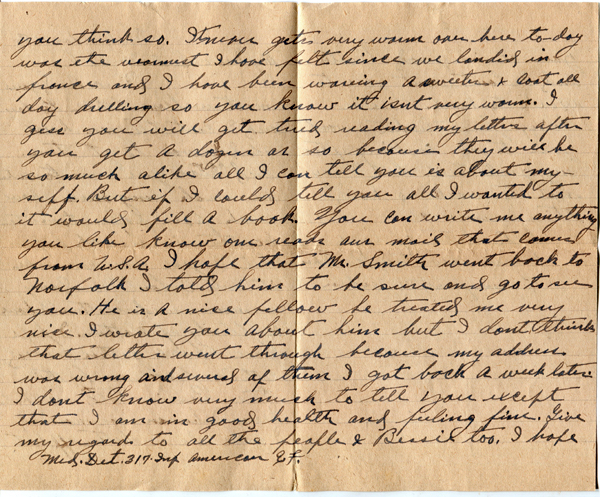 you think so. It never gets very warm over here to-day
was the warmest I have felt since we landed in
france and I have been wareing a sweeter & coat all
day drilling so you know it isnt very warm. I
gess you will get tired reading my letters after
you get a dozen or so because they will be
so much alike all I can tell you is about my-
self. But if I could tell you all I wanted to
it would fill a book. You can write me anything
you like know one reads our mail that comes
from U.S.A. I hope that Mr. Smith went back to
Norfolk I told him to be sure and go to see
you. He is a nice fellow he treated me very
nice. I wrote you about him but I dont think
that letter went through because my address
was wrong and several of them I got back a week later.
I dont know very much to tell you except
that I am in good health and feeling fine. Give
my regards to all the people & Bessie too. I hope
Med. Det. 317. Inf american E.F.